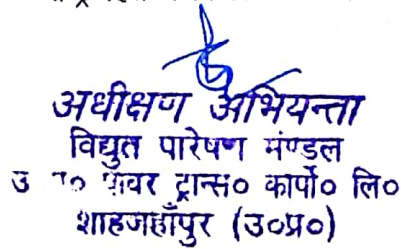 अधीक्षण अभियन्ता
विद्युत पारेषण मंण्डल
पावर ट्रान्स० कार्पो० लि०
शाहजहाँपुर (उ०प्र०)